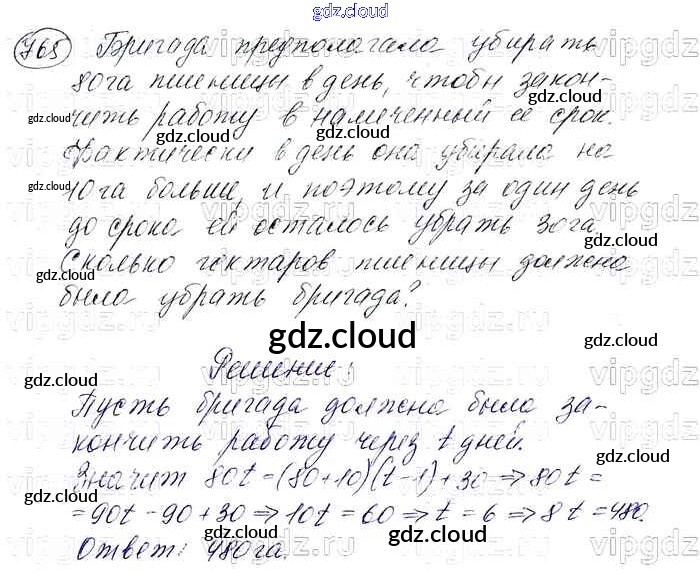 gdz.cloud
768 Бригада предполагала убирать
80га пшеницы в день, чтобы закон-
чить работу в намеченный ее срок.
Фактически в день она убирала на
10га больше, и поэтому за один день
до срока ей осталось убрать 30га.
Сколько гектаров пшеницы должна
была убрать бригада?
gdz.cloud
Решение:
Пусть бригада должна была за-
кончить работу через t дней.
Значит 80t=(80+10)(t-1)+30⇒80t=
=90t-90+30⇒10t=60⇒t=6⇒8t=480.
Ответ: 480га.
gdz.cloud